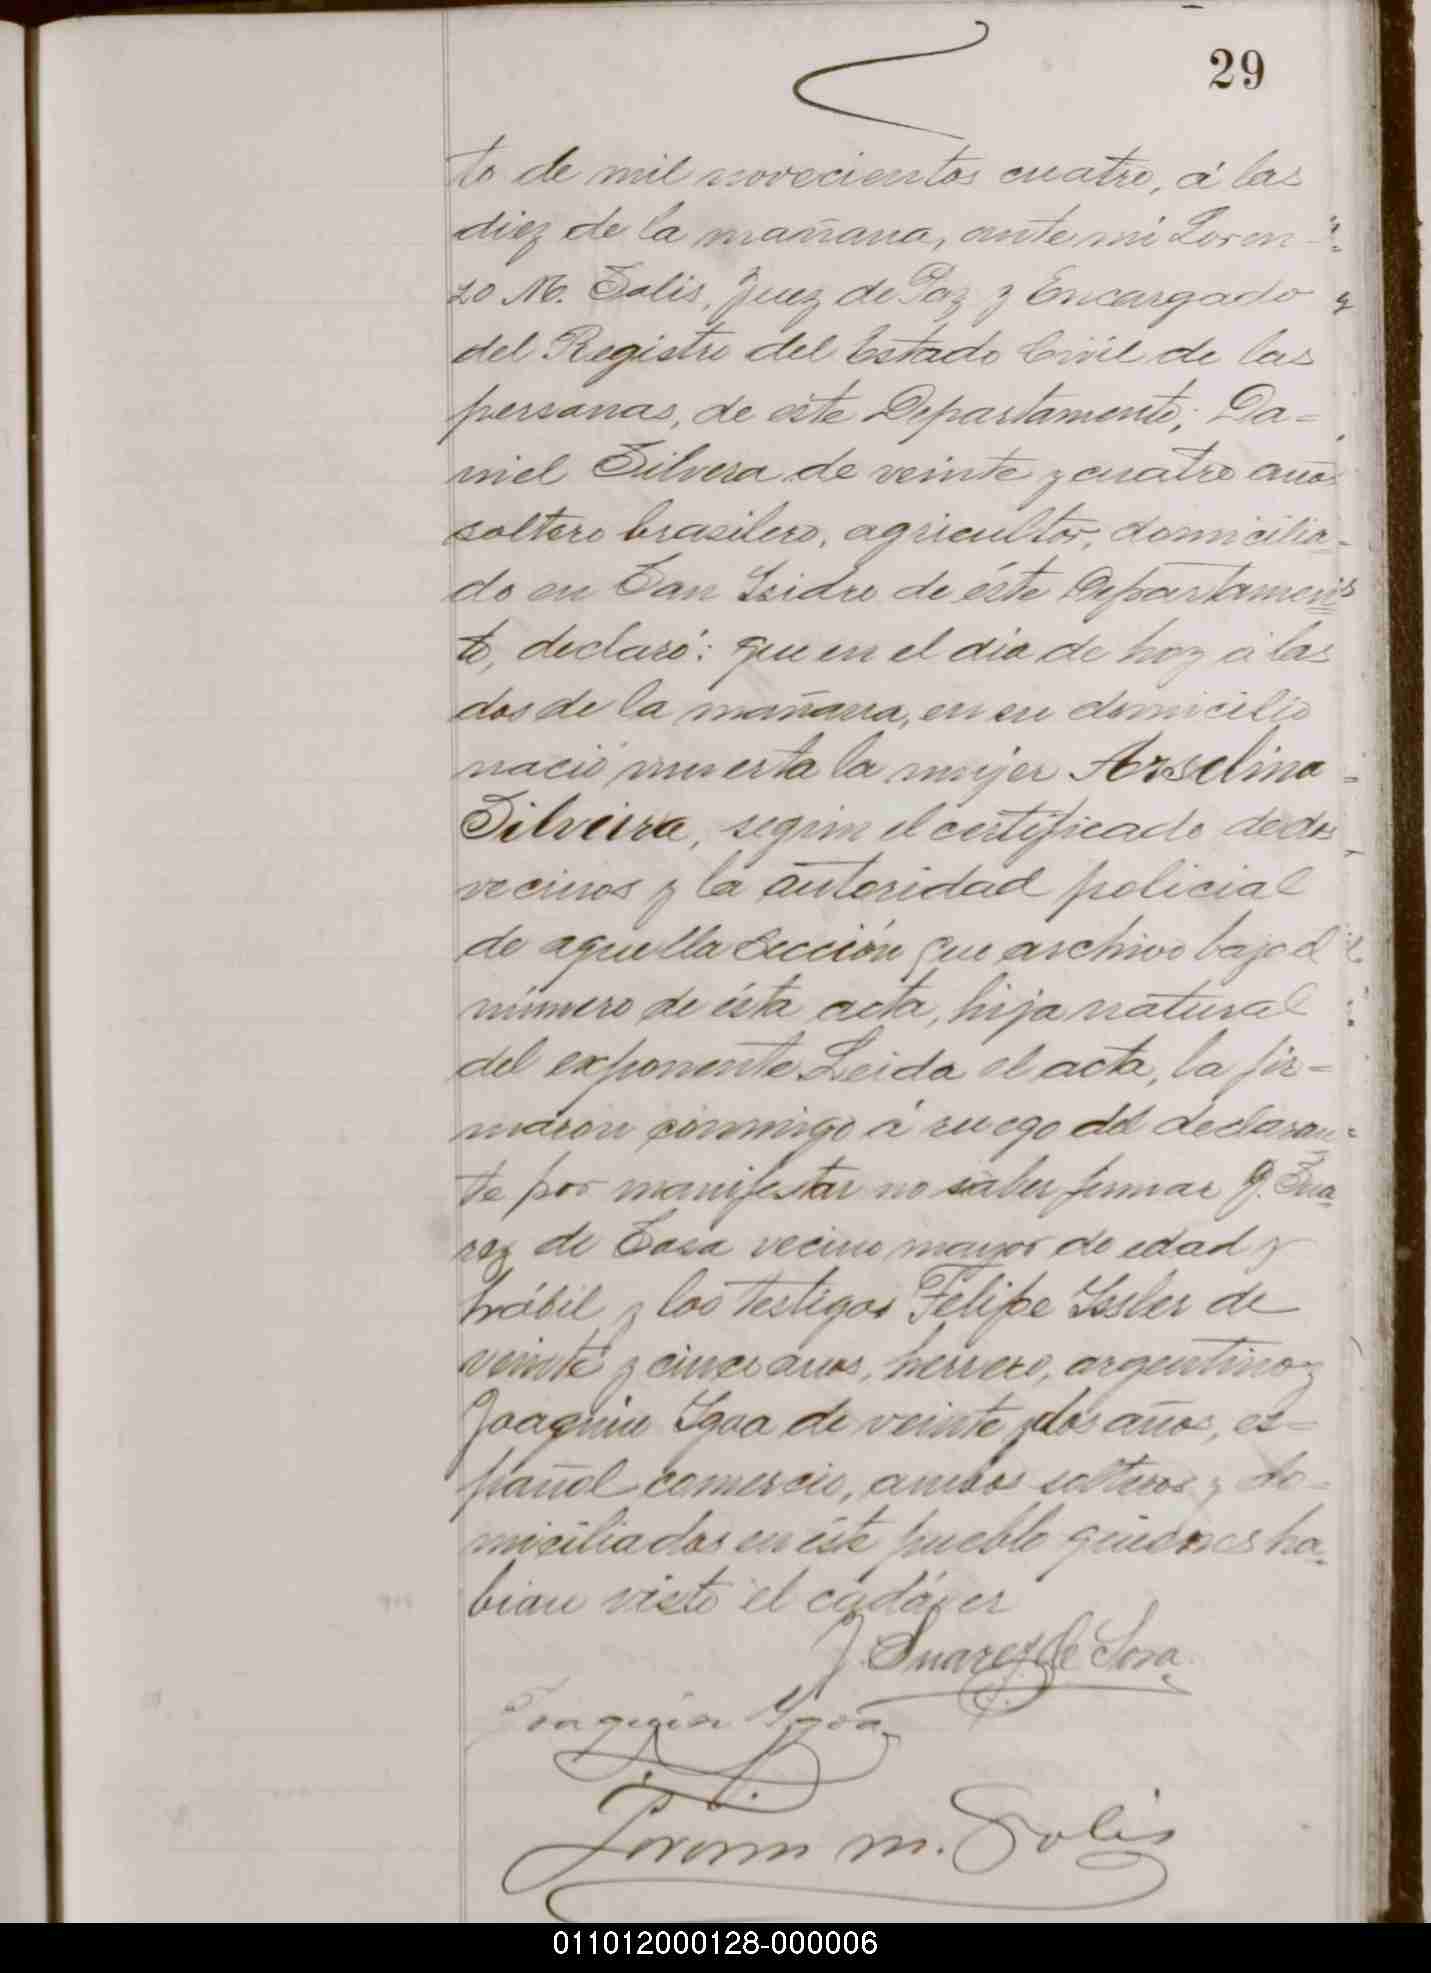 29
to de mil novecientos cuatro, á las
diez de la mañana, ante mi Loren-
zo M. Solis, Juez de Paz y Encargado
del Registro del Estado Civil de las
personas, de este Departamento; Da=
niel Silvera de veinte y cuatro años
soltero brasilero, agricultor, domicilia-
do en San Isidro de éste Departamen=
to, declaró: que en el dia de hoy á las
dos de la mañana, en su domicilio
nació muerta la mujer Arselina
Silveira, segun el certificado de dos
vecinos y la autoridad policial
de aquella Sección que archivo bajo el
número de ésta acta, hija natural
del exponente Leida el acta, la fir=
maron conmigo á ruego del declaran=
te por manifestar no saber firmar J. Sua
rez de Sosa vecino mayor de edad y
hábil y los testigos Felipe Issler de
veinte y cinco años, herrero, argentino y
Joaquin Ygoa de veinte y dos años, es=
pañol comercio, ambos solteros y do-
miciliados en éste pueblo quienes ha-
bian visto el cadáver
J. Suarez de Sosa
Joaquin Ygoa
Lorenzo M. Solis
011012000128-000006